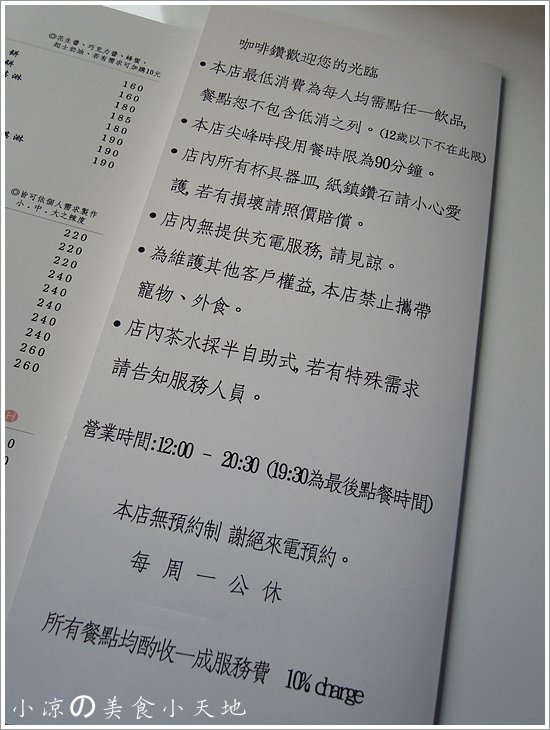 ◎花生醬、巧克力醬、蜂蜜、
起士奶油、若有需求可加購10元
餅 160
餅 160
180
淋 185
180
190
淋 190
190
◎皆可依個人需求製作
小．中．大之辣度
220
220
220
240
240
240
240
240
260
260
咖啡鑽歡迎您的光臨
•本店最低消費為每人均需點任一飲品,
餐點恕不包含低消之列。(12歲以下不在此限)
•本店尖峰時段用餐時限為90分鐘。
•店內所有杯具器皿,紙鎮鑽石請小心愛
護,若有損壞請照價賠償。
•店內無提供充電服務,請見諒。
•為維護其他客戶權益,本店禁止攜帶
寵物、外食。
•店內茶水採半自助式,若有特殊需求
請告知服務人員。
營業時間:12:00 - 20:30 (19:30為最後點餐時間)
本店無預約制 謝絕來電預約。
每周一公休
所有餐點均酌收一成服務費 10% charge
小凉の美食小天地